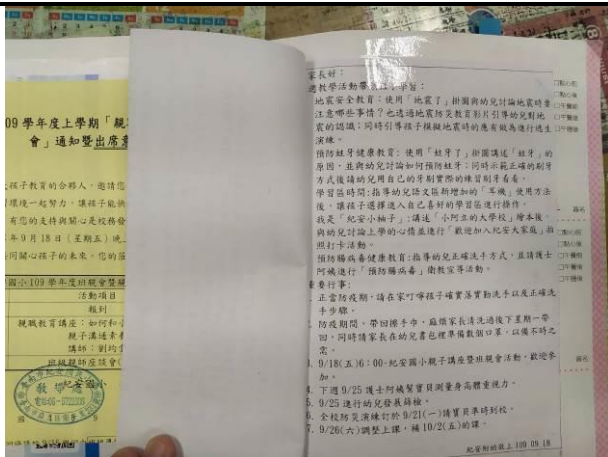 09 學年度上學期「親
會」通知暨出席意
孩子教育的合夥人，邀請您
環境一起努力，讓孩子能快
有您的支持與關心是校務發
年 9 月 18 日（星期五）晚
同關心孩子的未來。您的蒞
國小 109 學年度班親會暨親
活動項目
報到
親職教育講座：如何和
親子溝通素養
講師：劉均
班級親師座談會
紀安國小
教學處
家長好：
週教學活動帶孩子學習：
地震安全教育：使用「地震了」掛圖與幼兒討論地震時要
注意哪些事情？也透過地震防災教育影片引導幼兒對地
震的認識；同時引導孩子模擬地震時的應有做為進行逃生
演練。
預防蛀牙健康教育：使用「蛀牙了」掛圖講述「蛀牙」的
原因，並與幼兒討論如何預防蛀牙；同時示範正確的刷牙
方式後請幼兒用自己的牙刷實際的練習刷牙看看。
學習區時間：指導幼兒語文區新增加的「耳機」使用方法
後，讓孩子選擇進入自己喜好的學習區進行操作。
我是「紀安小柚子」：講述「小阿立的大學校」繪本後，
與幼兒討論上學的心情並進行「歡迎加入紀安大家庭」拍
照打卡活動。
預防腸病毒健康教育：指導幼兒正確洗手方式，並請護士
阿姨進行「預防腸病毒」衛教宣導活動。
重要行事：
正當防疫期，請在家叮嚀孩子確實落實勤洗手以及正確洗
手步驟。
防疫期間，帶回擦手巾，麻煩家長清洗過後下星期一帶
回，同時請家長在幼兒書包裡準備數個口罩，以備不時之
需。
9/18(五)6：00-紀安國小親子講座暨班親會活動，歡迎參
加。
下週 9/25 護士阿姨幫寶貝測量身高體重視力。
9/25 進行幼兒發展篩檢。
全校防災演練訂於 9/21(一)請寶貝準時到校。
7. 9/26(六)調整上課，補 10/2(五)的課。
紀安附幼敬上 109 09.18
□點心前
□點心後
□午餐前
□午餐後
簽名
□點心前
□點心後
□午餐前
□午餐後
簽名